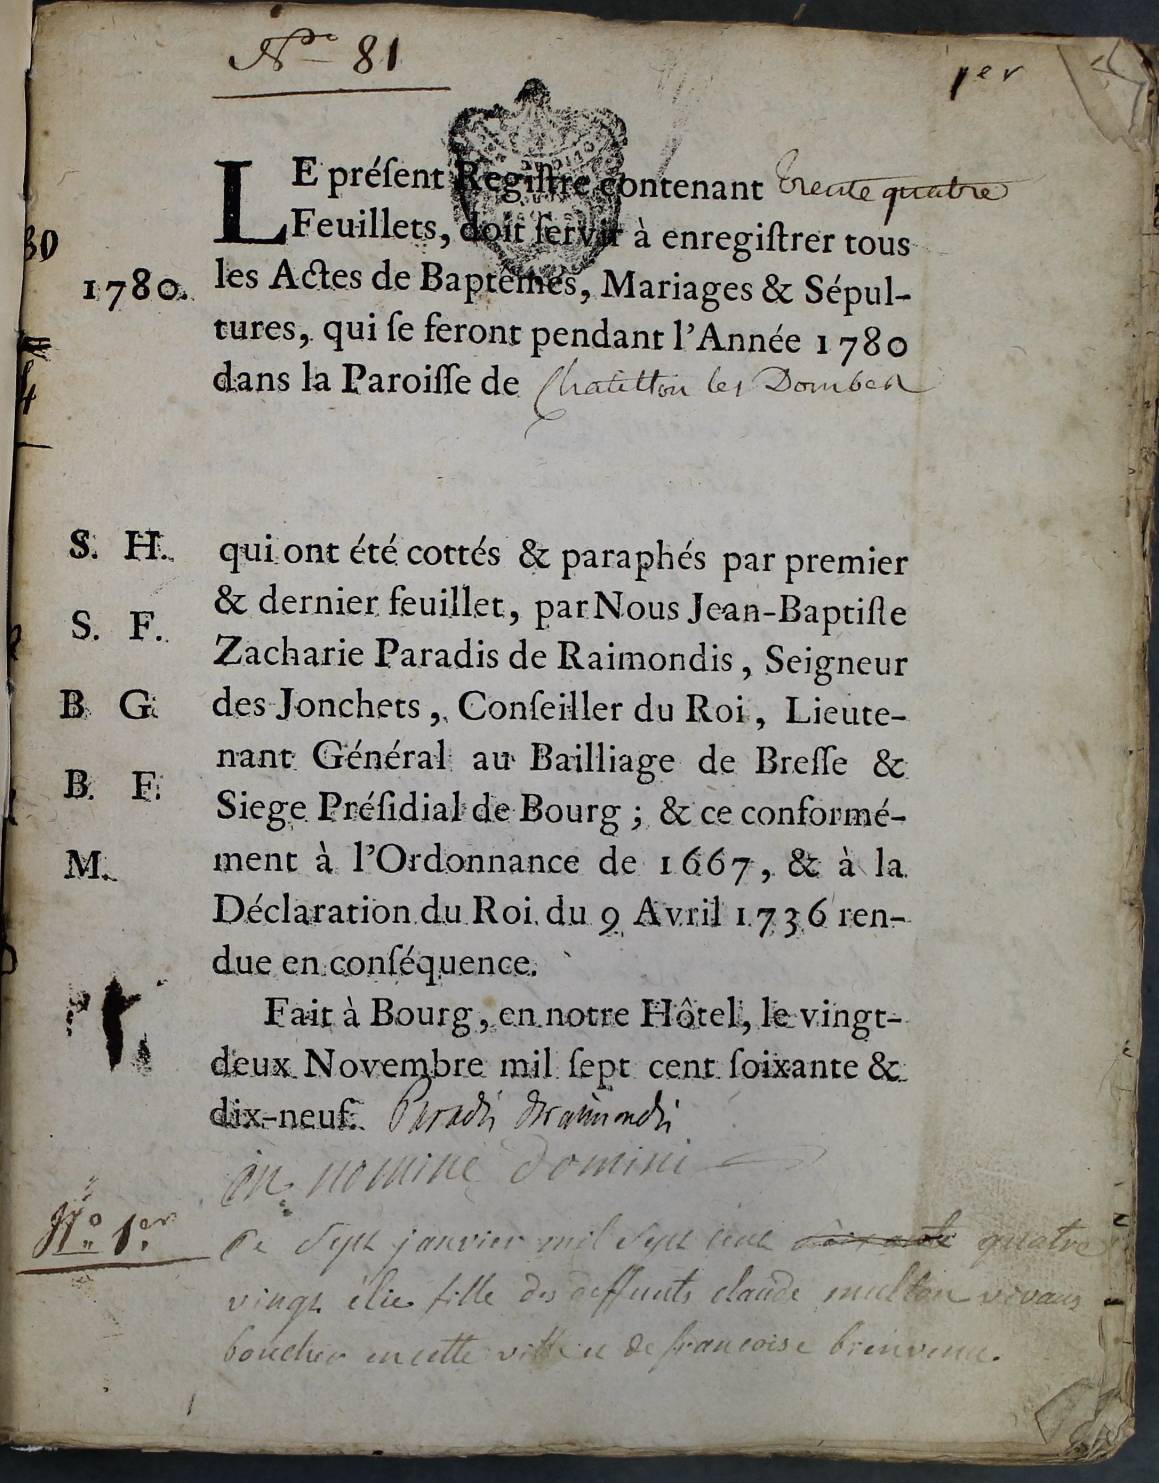 Nre 81
1er
LE préſent Regiſtre contenant trente quatre
Feuillets, doit ſervir à enregiſtrer tous
1780. les Actes de Baptêmes, Mariages & Sépul-
tures, qui ſe feront pendant l'Année 1780
dans la Paroiſſe de Chatillon les Dombes
S. H. qui ont été cottés & paraphés par premier
& dernier feuillet, par Nous Jean-Baptiſte
S. F.
Zacharie Paradis de Raimondis, Seigneur
B G. des Jonchets, Conſeiller du Roi, Lieute-
nant Général au Bailliage de Breſſe &
B. F. Siege Préſidial de Bourg ; & ce conformé-
M. ment à l'Ordonnance de 1667, & à la
Déclaration du Roi du 9 Avril 1736 ren-
due en conſéquence.
Fait à Bourg, en notre Hôtel, le vingt-
deux Novembre mil ſept cent ſoixante &
dix-neuf. Paradis deraimondis
in nomine domini
No 1er Ce Sept janvier mil Sept cent soixante quatre
vingt fille des deffunts claude vivans
boucher en cette ville et de francoise bienvenu.